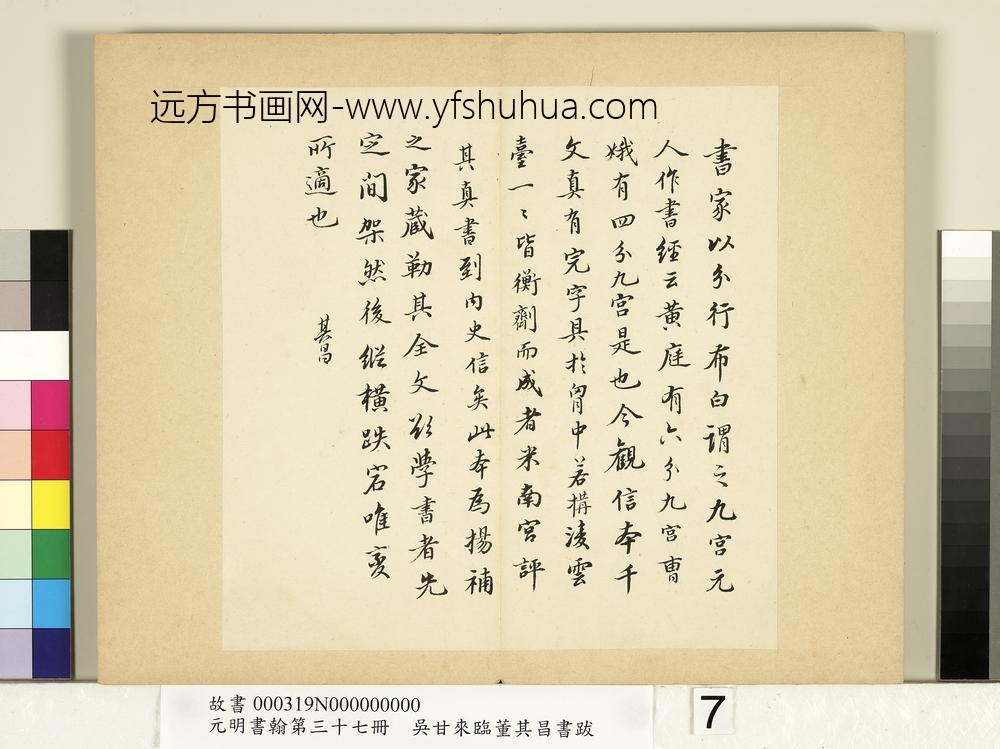 远方书画网-www.yfshuhua.com
書家以分行布白謂之九宮元
人作書經云黃庭有六分九宮曹
娥有四分九宮是也今觀信本千
文真有完字具於胷中若構凌雲
臺一〻皆衡劑而成者米南宮評
其真書到內史信矣此本為揚補
之家藏勒其全文欲學書者先
定間架然後縱橫跌宕唯變
所適也
其昌
故書 000319N000000000
元明書翰第三十七冊 吳甘來臨董其昌書跋
7